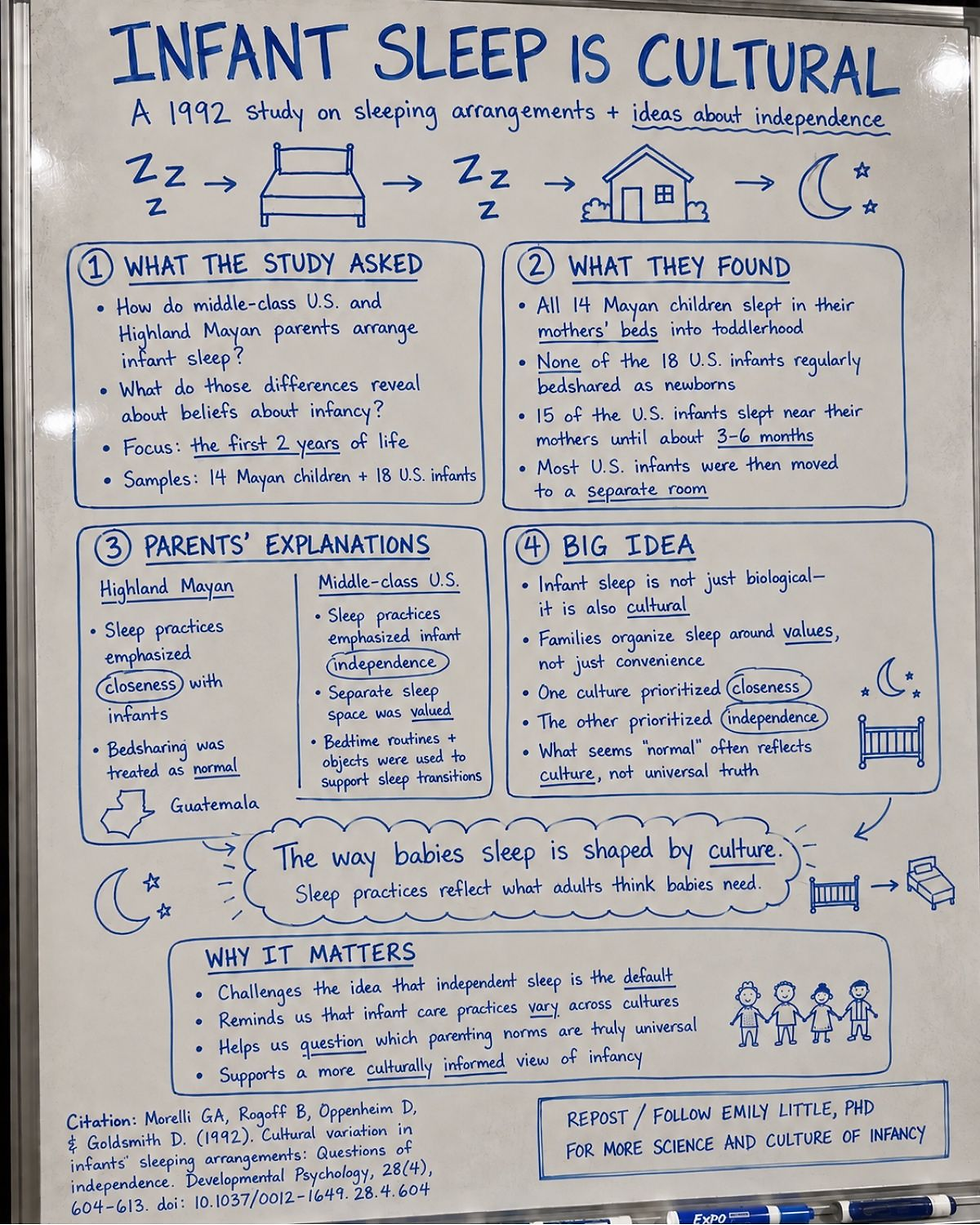 INFANT SLEEP IS CULTURAL
A 1992 study on sleeping arrangements + ideas about independence
Z Z Z
Z Z Z
① WHAT THE STUDY ASKED
• How do middle-class U.S. and
Highland Mayan parents arrange
infant sleep?
• What do those differences reveal
about beliefs about infancy?
• Focus: the first 2 years of life
• Samples: 14 Mayan children + 18 U.S. infants
② WHAT THEY FOUND
• All 14 Mayan children slept in their
mothers' beds into toddlerhood
• None of the 18 U.S. infants regularly
bedshared as newborns
• 15 of the U.S. infants slept near their
mothers until about 3-6 months
• Most U.S. infants were then moved
to a separate room
③ PARENTS' EXPLANATIONS
Highland Mayan
• Sleep practices
emphasized
closeness with
infants
• Bedsharing was
treated as normal
Guatemala
Middle-class U.S.
• Sleep practices
emphasized infant
independence
• Separate sleep
space was valued
• Bedtime routines +
objects were used to
support sleep transitions
④ BIG IDEA
• Infant sleep is not just biological—
it is also cultural
• Families organize sleep around values,
not just convenience
• One culture prioritized closeness
• The other prioritized independence
• What seems "normal" often reflects
culture, not universal truth
The way babies sleep is shaped by culture.
Sleep practices reflect what adults think babies need.
WHY IT MATTERS
• Challenges the idea that independent sleep is the default
• Reminds us that infant care practices vary across cultures
• Helps us question which parenting norms are truly universal
• Supports a more culturally informed view of infancy
Citation: Morelli GA, Rogoff B, Oppenheim D,
& Goldsmith D. (1992). Cultural variation in
infants' sleeping arrangements: Questions of
independence. Developmental Psychology, 28(4),
604-613. doi: 10.1037/0012-1649.28.4.604
REPOST / FOLLOW EMILY LITTLE, PHD
FOR MORE SCIENCE AND CULTURE OF INFANCY
EXPO